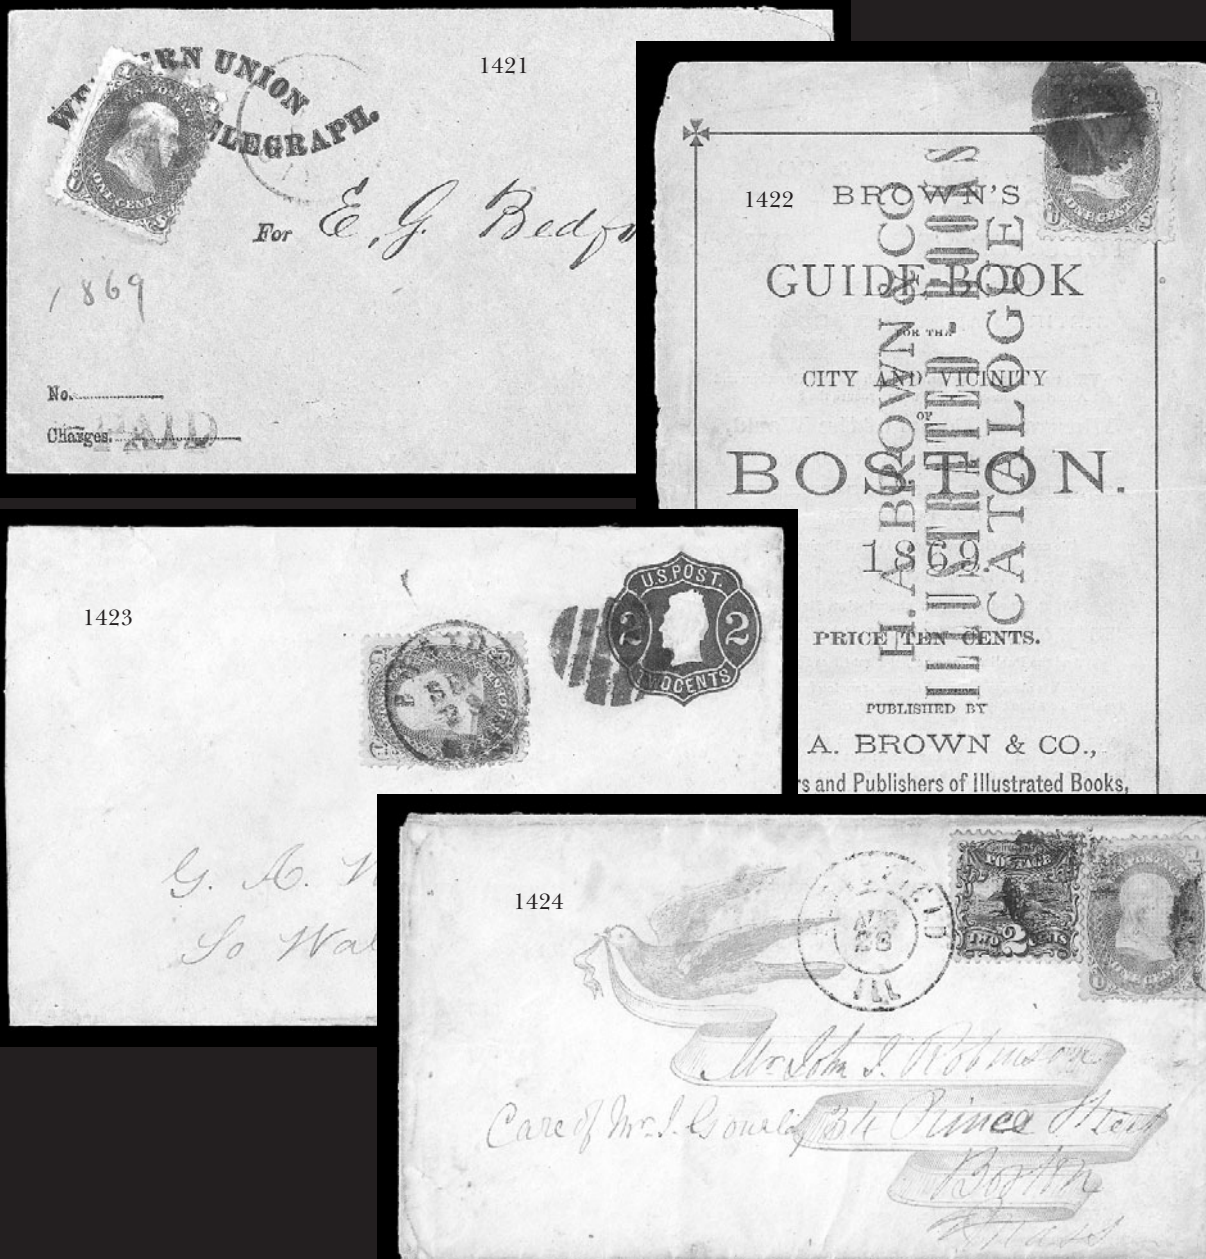 1421
WESTERN UNION
TELEGRAPH.
ONE CENT
For E. G. Bedfo
1869
No.
Charges. PAID
1422
BROWN'S
GUIDE-BOOK
FOR THE
CITY AND VICINITY
OF
BOSTON.
1869.
PRICE TEN CENTS.
PUBLISHED BY
A. BROWN & CO.,
rs and Publishers of Illustrated Books,
H. A. BROWN & CO
ILLUSTRATED BOOKS
CATALOGUE
1423
U.S. POST.
2 2
TWO CENTS
G. A. W
So Wal
1424
AUG
28
ILL
POSTAGE
TWO 2 CENTS
POSTAGE
ONE CENT
Mr. John J. Robinson
Care of Mr. J. 34 Prince Street
Boston
Mass